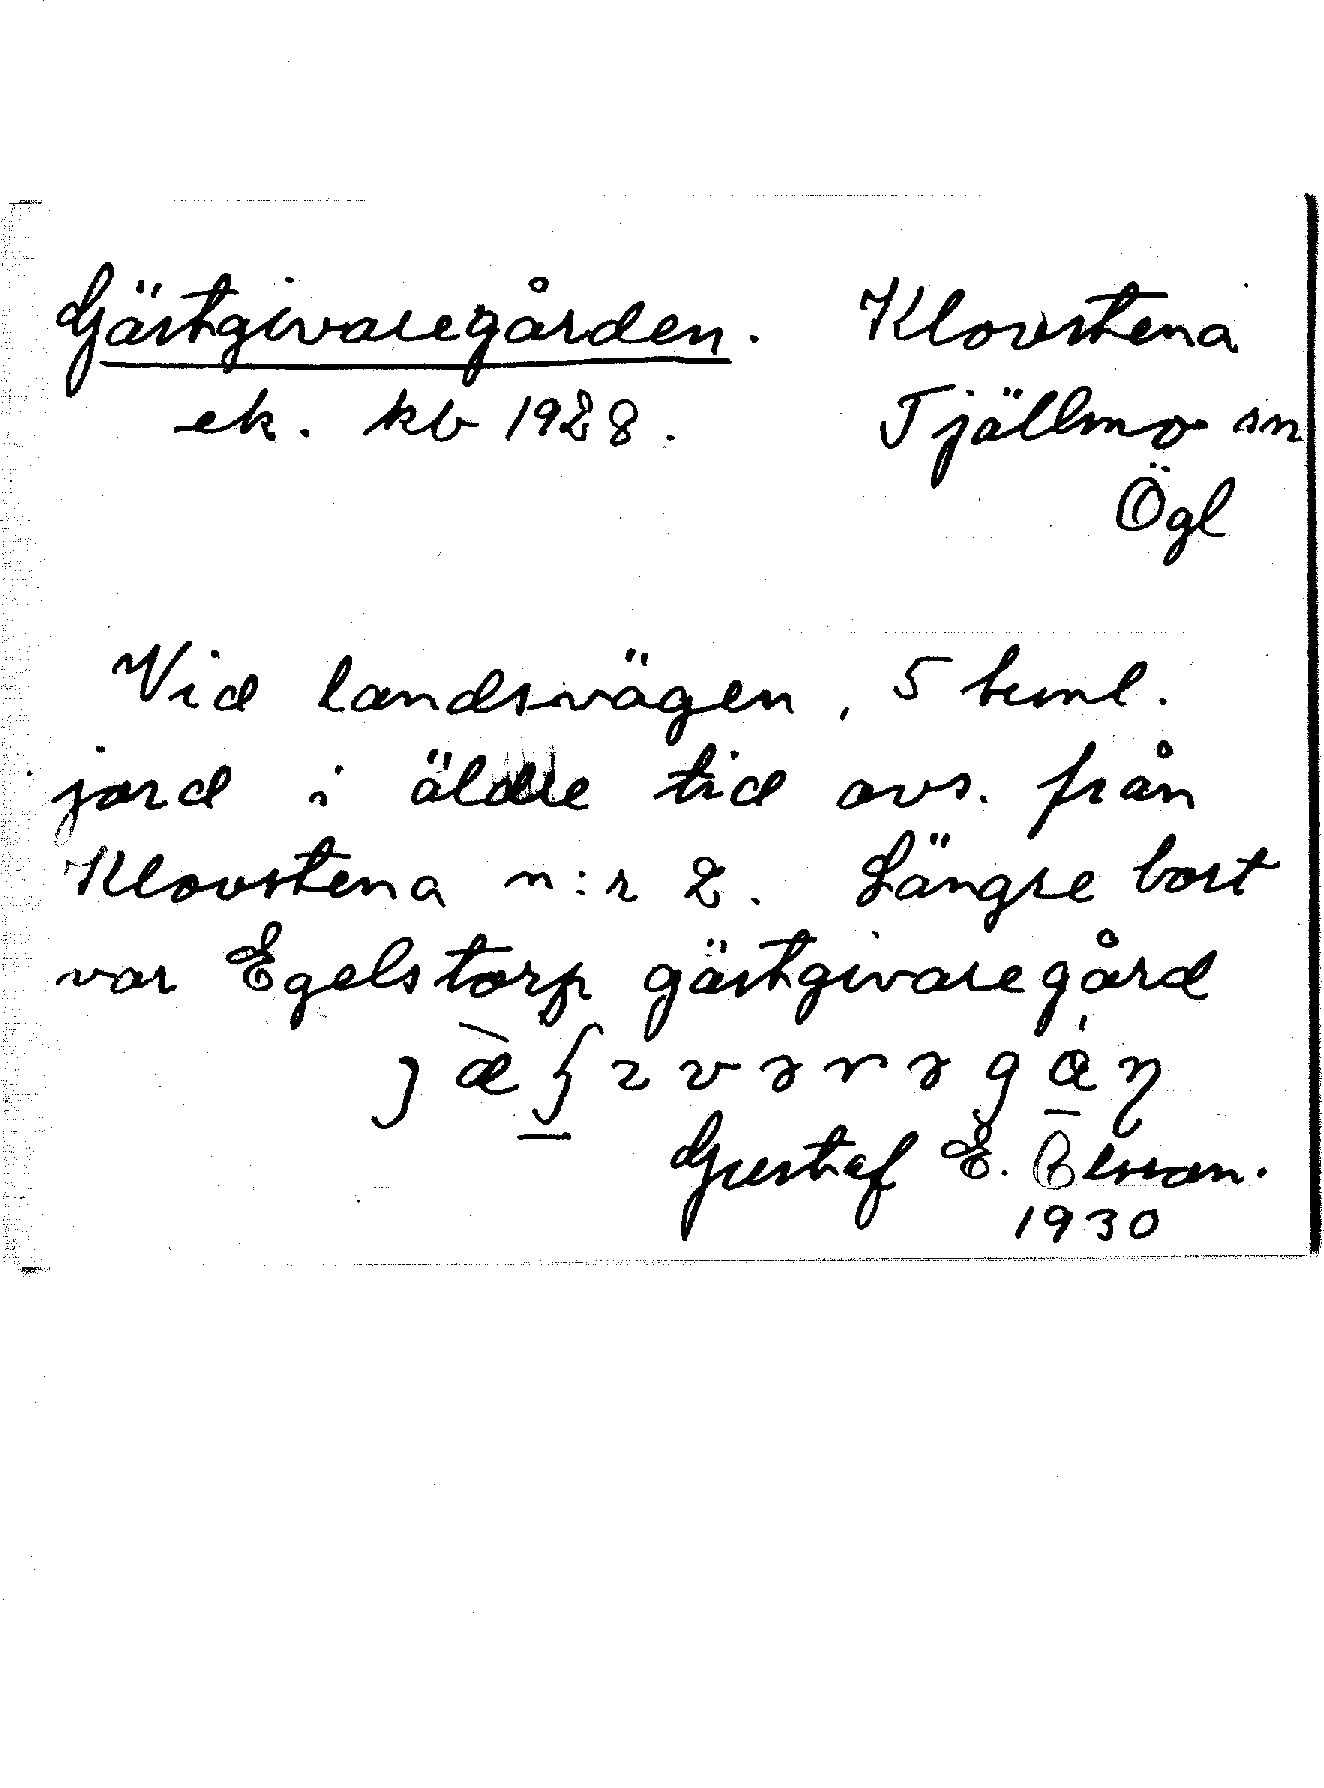 Gästgivaregården. Klovstena
ek. kb 1928. Tjällmo sn
Ögl
Vid landsvägen, 5 tunnl.
jord i äldre tid avs. från
Klovstena n:r 2. Längre bort
var Egelstorp gästgivaregård
Gustaf E.
1930